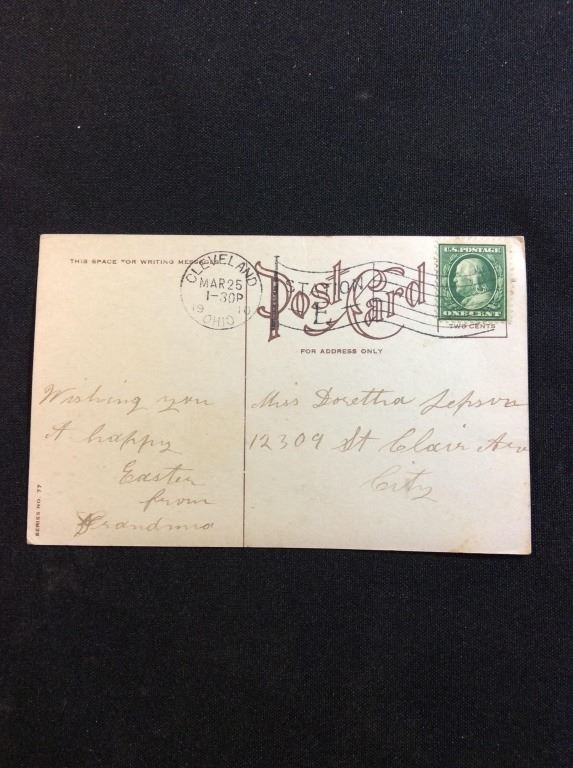 THIS SPACE FOR WRITING MESSAGES
CLEVELAND
MAR 25
1-30P
1910
OHIO
STATION
E
Post Card
FOR ADDRESS ONLY
U.S. POSTAGE
ONE CENT
TWO CENTS
Wishing you
A happy
Easter
from
Grandma
Miss Doretha Jepson
12309 St Clair Ave
City
SERIES NO. 77